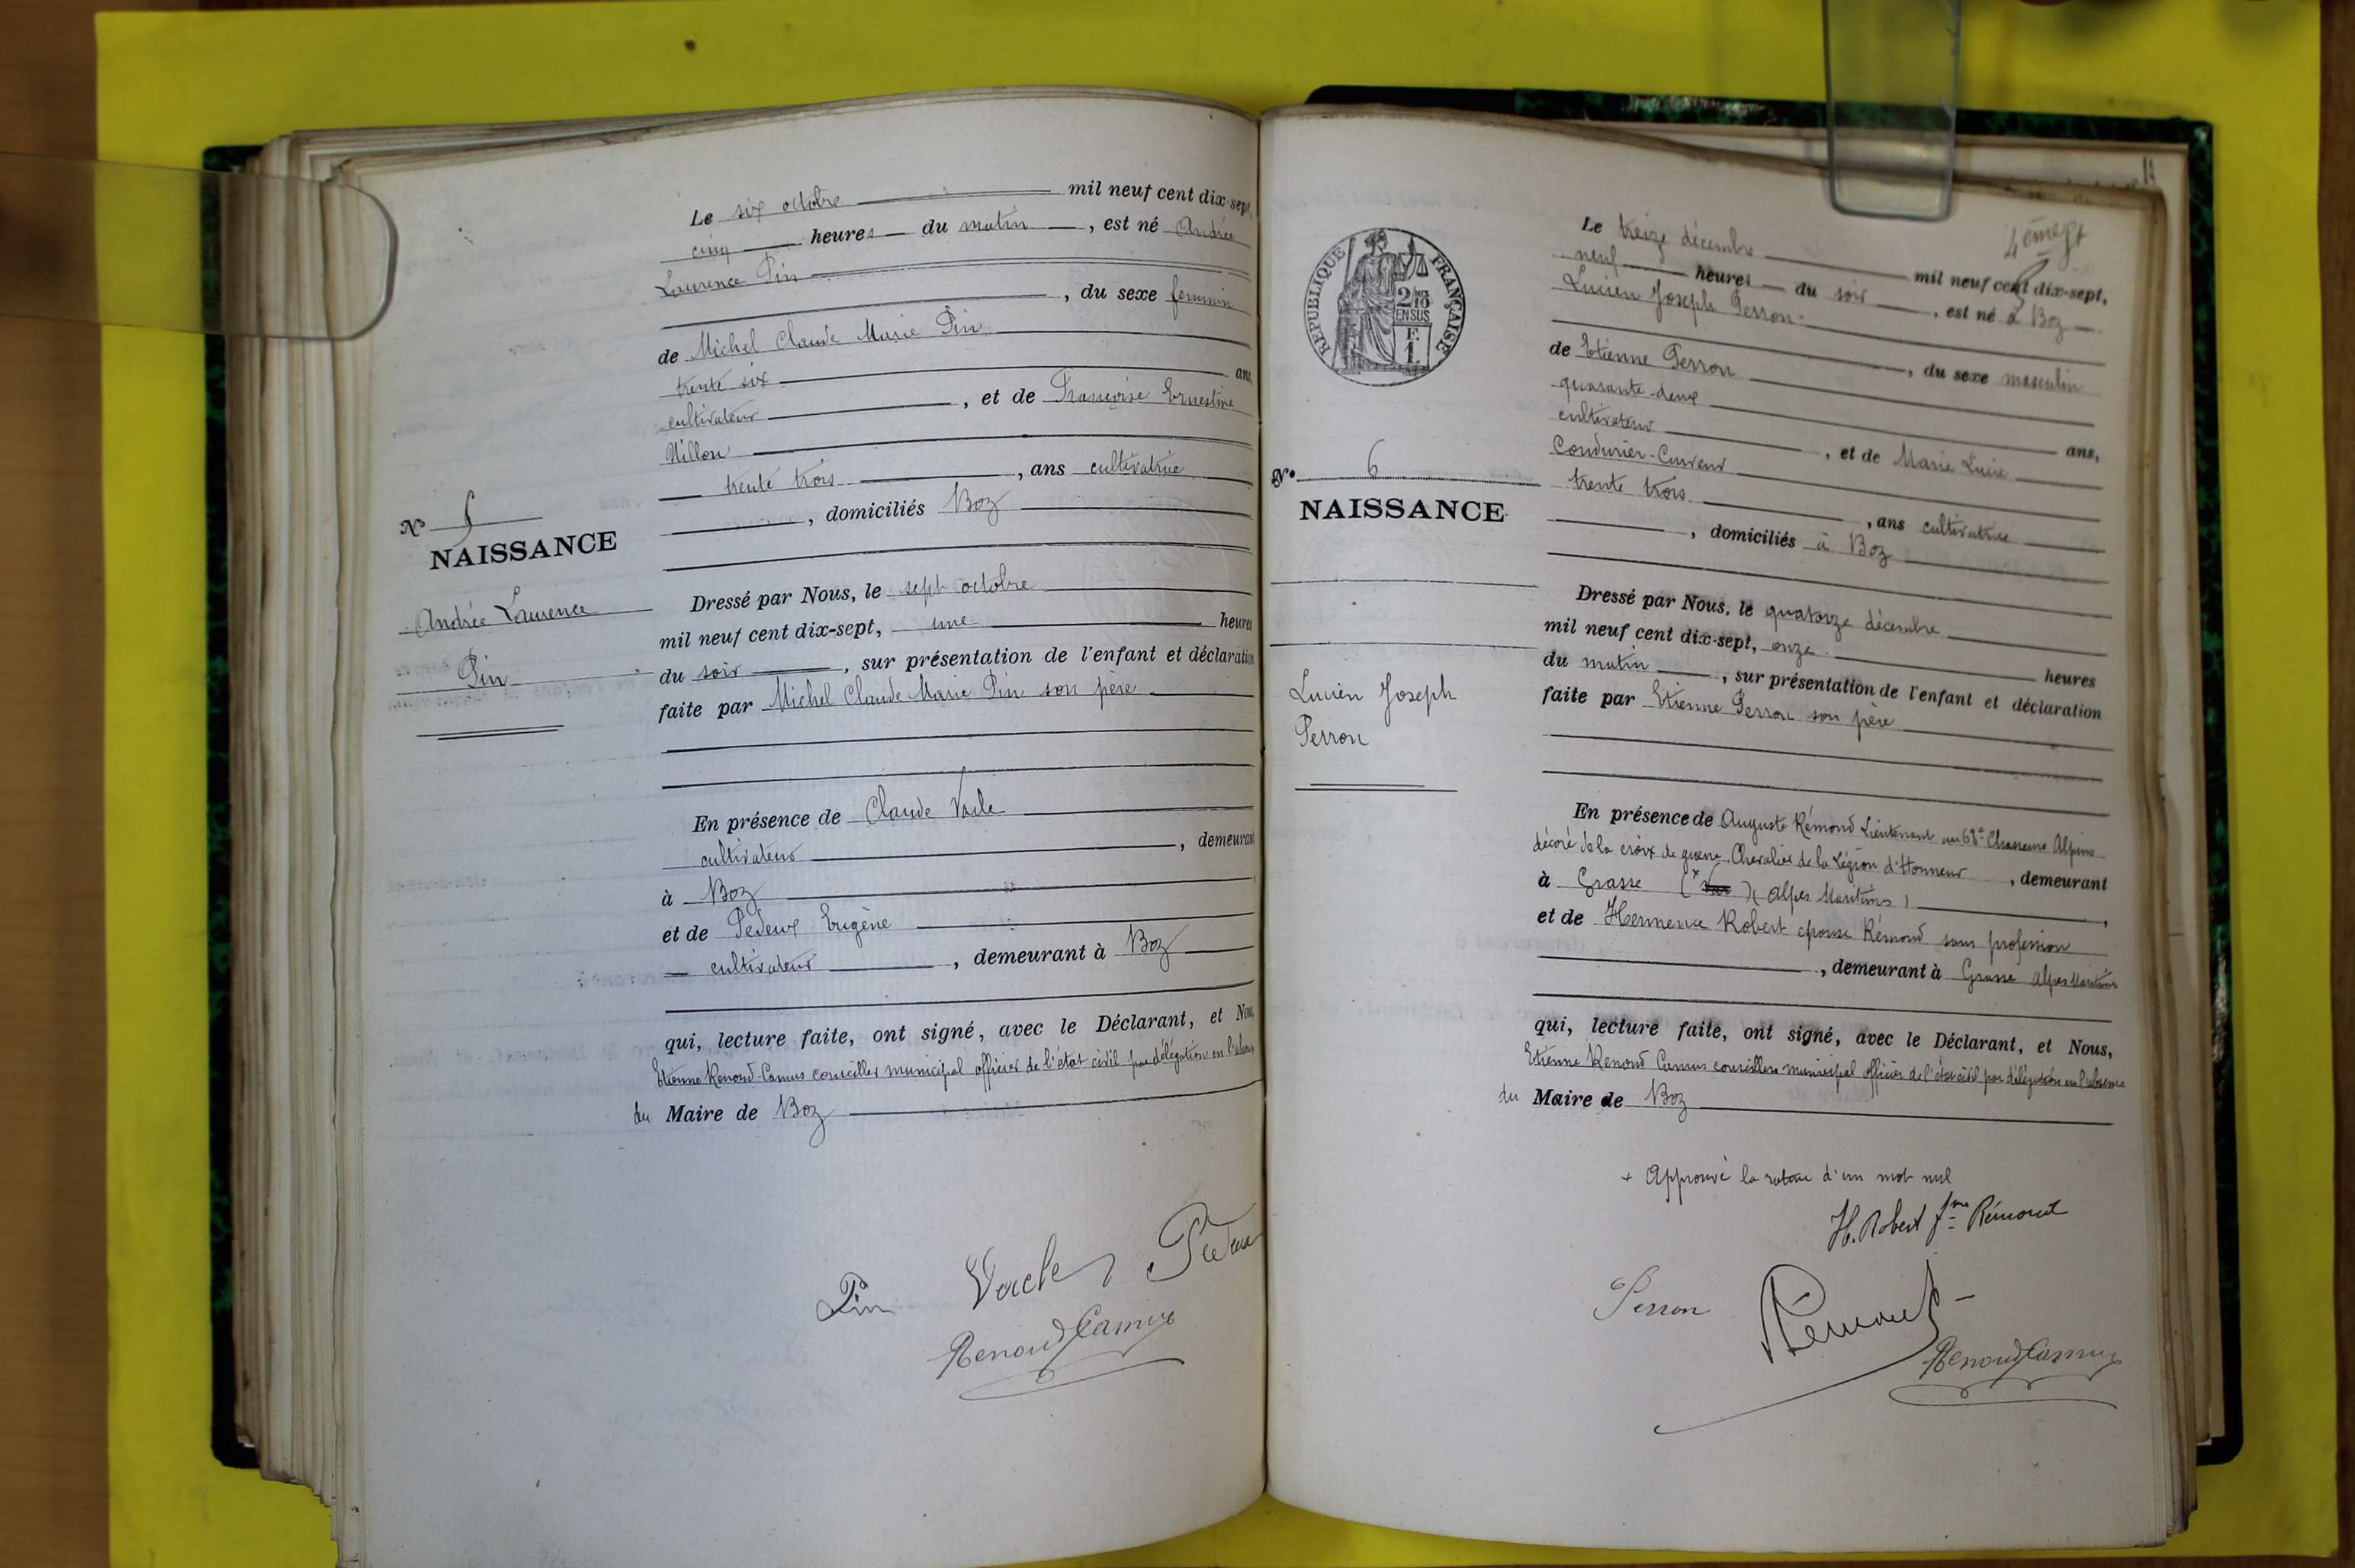 Le six octobre mil neuf cent dix-sept,
cinq heures du matin, est né Andrée
Laurence Pin
, du sexe feminin
de Michel Claude Marie Pin
trente six ans,
cultivateur, et de Françoise Ernestine
Millon
trente trois, ans cultivatrice
, domiciliés Boz
N° 5
NAISSANCE
Andrée Laurence
Pin
Dressé par Nous, le sept octobre
mil neuf cent dix-sept, une heures
du soir, sur présentation de l'enfant et déclaration
faite par Michel Claude Marie Pin son père
En présence de Claude Vacle
cultivateur, demeurant
à Boz
et de Pedeux Eugène
cultivateur, demeurant à Boz
qui, lecture faite, ont signé, avec le Déclarant, et Nous,
Etienne Renoud-Camus conseiller municipal officier de l'état civil par délégation en l'absence
du Maire de Boz
Pin Vacle Pedeux
Renoud Camus
4eme ft
RÉPUBLIQUE FRANÇAISE
2/10
EN SUS
F.
1.
Le treize décembre mil neuf cent dix-sept,
neuf heures du soir, est né à Boz
Lucien Joseph Perron
, du sexe masculin
de Etienne Perron
quarante-deux ans,
cultivateur, et de Marie Lucie
Condurier-Curveur
trente trois, ans cultivatrice
, domiciliés à Boz
N° 6
NAISSANCE
Lucien Joseph
Perron
Dressé par Nous, le quatorze décembre
mil neuf cent dix-sept, onze heures
du matin, sur présentation de l'enfant et déclaration
faite par Etienne Perron son père
En présence de Auguste Rémond Lieutenant au 68e Chasseurs Alpins
décoré de la croix de guerre Chevalier de la Légion d'Honneur, demeurant
à Grasse (x Var) (Alpes Maritimes)
et de Hermence Robert épouse Rémond sans profession
, demeurant à Grasse Alpes Maritimes
qui, lecture faite, ont signé, avec le Déclarant, et Nous,
Etienne Renoud Camus conseiller municipal officier de l'état civil par délégation en l'absence
du Maire de Boz
+ Approuvé la rature d'un mot nul
H. Robert fme Rémond
Perron Rémond
Renoud Camus